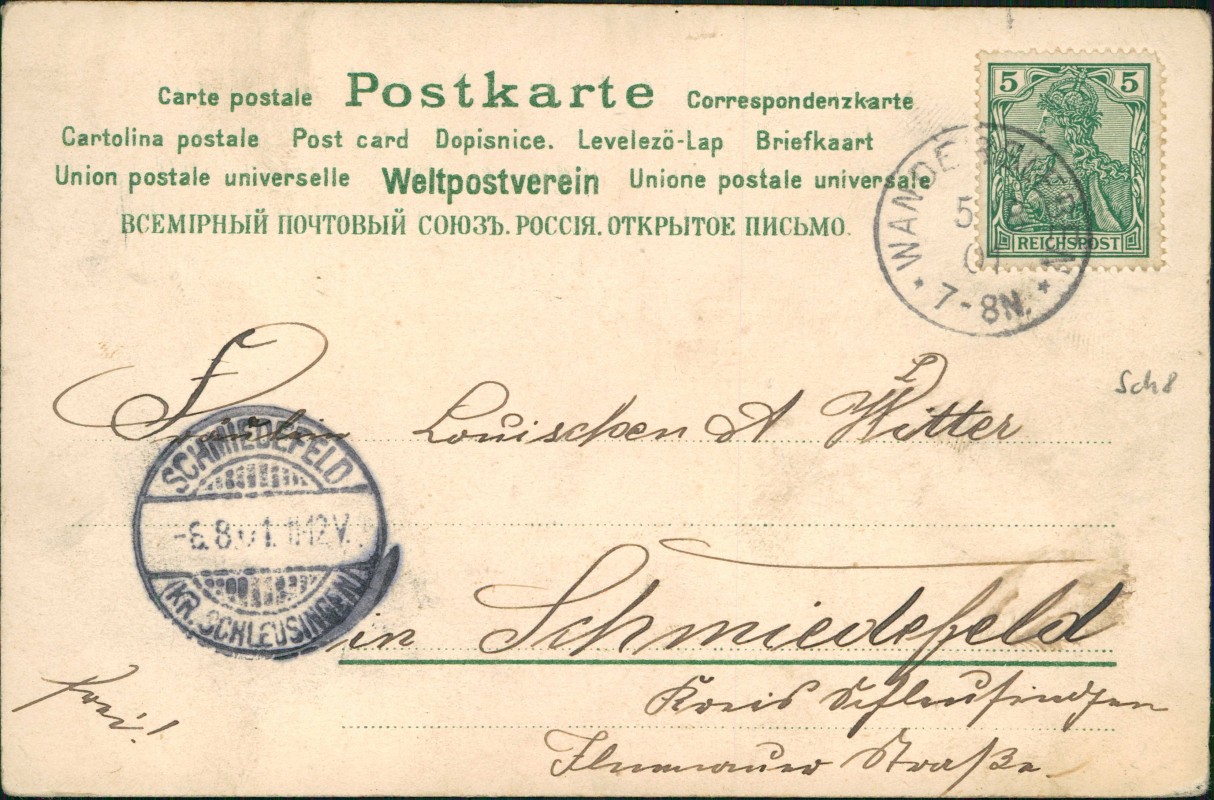 Carte postale Postkarte Correspondenzkarte
Cartolina postale Post card Dopisnice. Levelezö-Lap Briefkaart
Union postale universelle Weltpostverein Unione postale universale
ВСЕМІРНЫЙ ПОЧТОВЫЙ СОЮЗЪ. РОССІЯ. ОТКРЫТОЕ ПИСЬМО.
5 5
REICHSPOST
5
01
* 7-8N. *
Sch8
Louischen A Witter
SCHMIEDEFELD
-6.8.01. 11-12V.
(KR. SCHLEUSINGEN)
in Schmiedefeld
frei!
Kreis Schleusingen
Ilmenauer Straße.